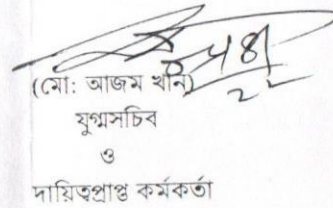 (মো: আজম খান)
যুগ্মসচিব
ও
দায়িত্বপ্রাপ্ত কর্মকর্তা